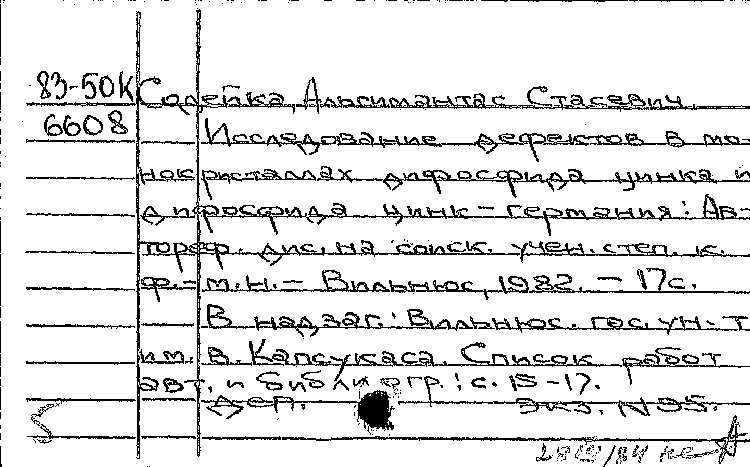 83-50К Содейка, Альгимантас Стасевич.
6608 Исследование дефектов в мо-
нокристаллах дифосфида цинка и
дифосфида цинк-германия: Ав-
тореф. дис. на соиск. учен. степ. к.
ф.-м.н. - Вильнюс, 1982. - 17с.
В надзаг.: Вильнюс. гос. ун-т
им. В. Капсукаса. Список работ
авт. и библиогр.: с. 15-17.
Деп. экз. N 95.